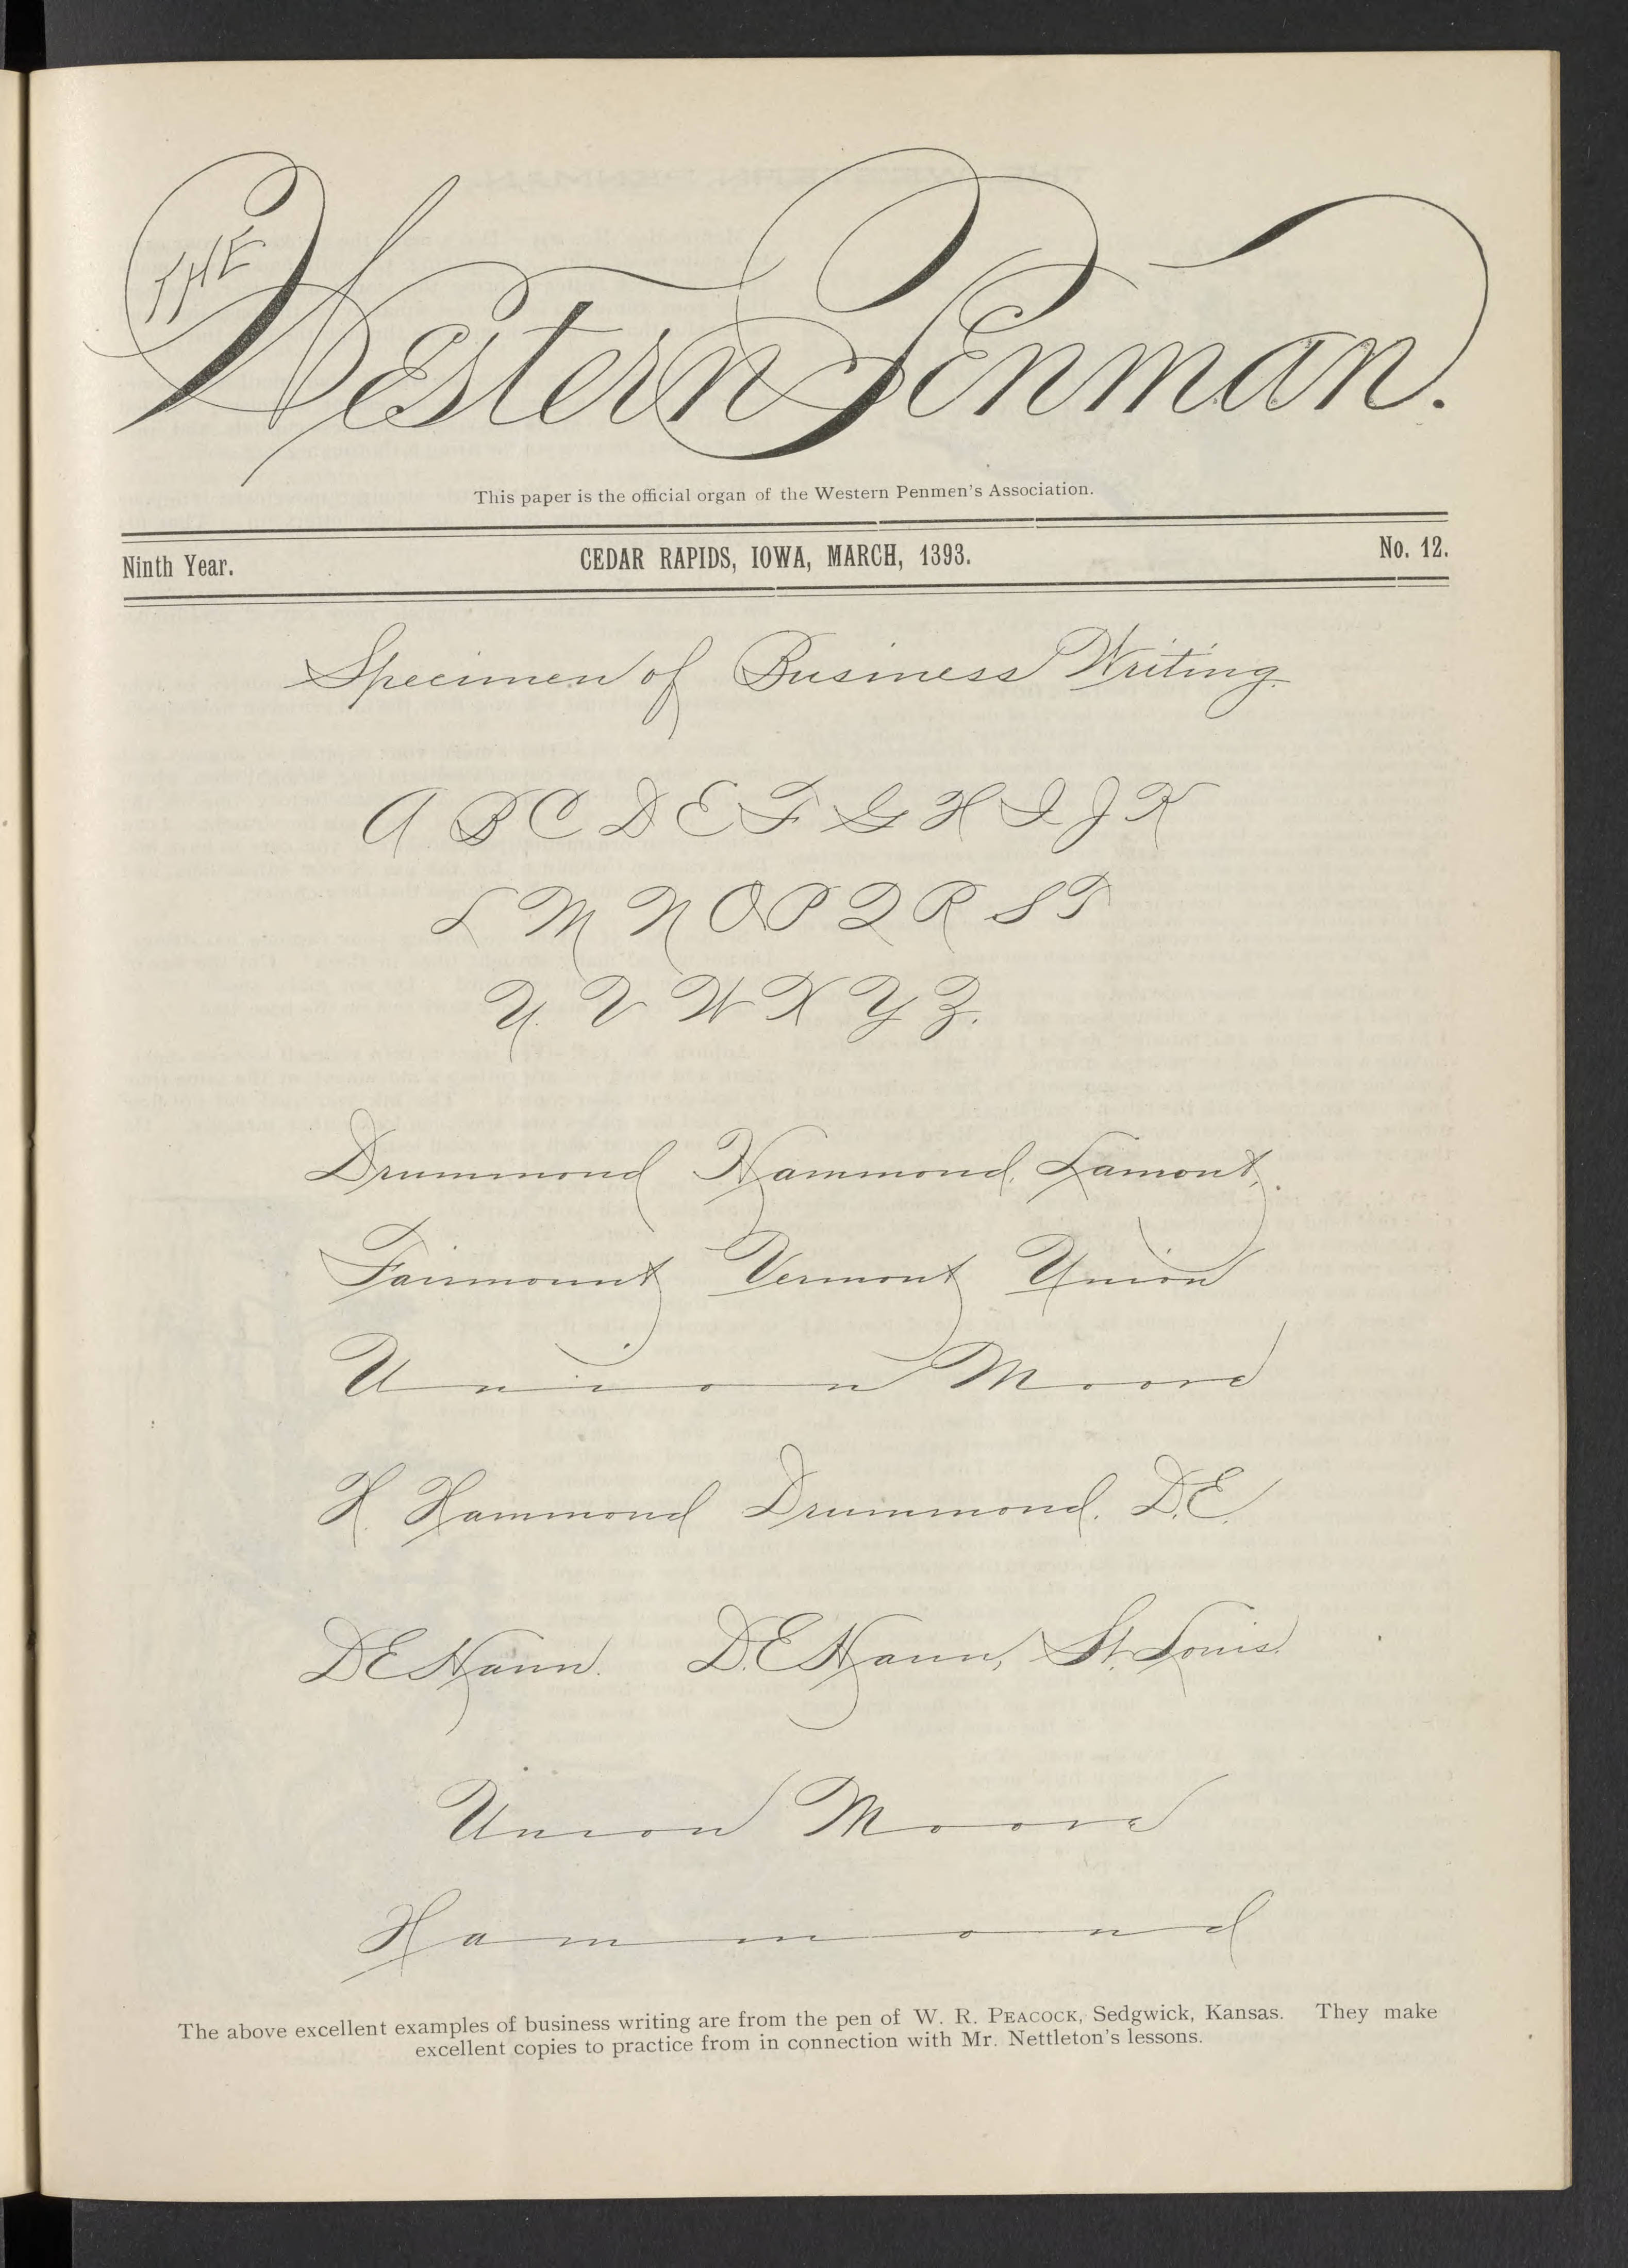 THE
Western Penman.
This paper is the official organ of the Western Penmen's Association.
Ninth Year. CEDAR RAPIDS, IOWA, MARCH, 1393. No. 12.
Specimen of Business Writing.
A B C D E F G H I J K
L M N O P Q R S T
U V W X Y Z.
Drummond Hammond, Lamont,.
Fairmount Vermont Union
Union Moore
H. Hammond Drummond. D.E.
D E Hann. D. E Hann, St. Louis.
Union Moore
Hammond
The above excellent examples of business writing are from the pen of W. R. PEACOCK, Sedgwick, Kansas. They make
excellent copies to practice from in connection with Mr. Nettleton's lessons.